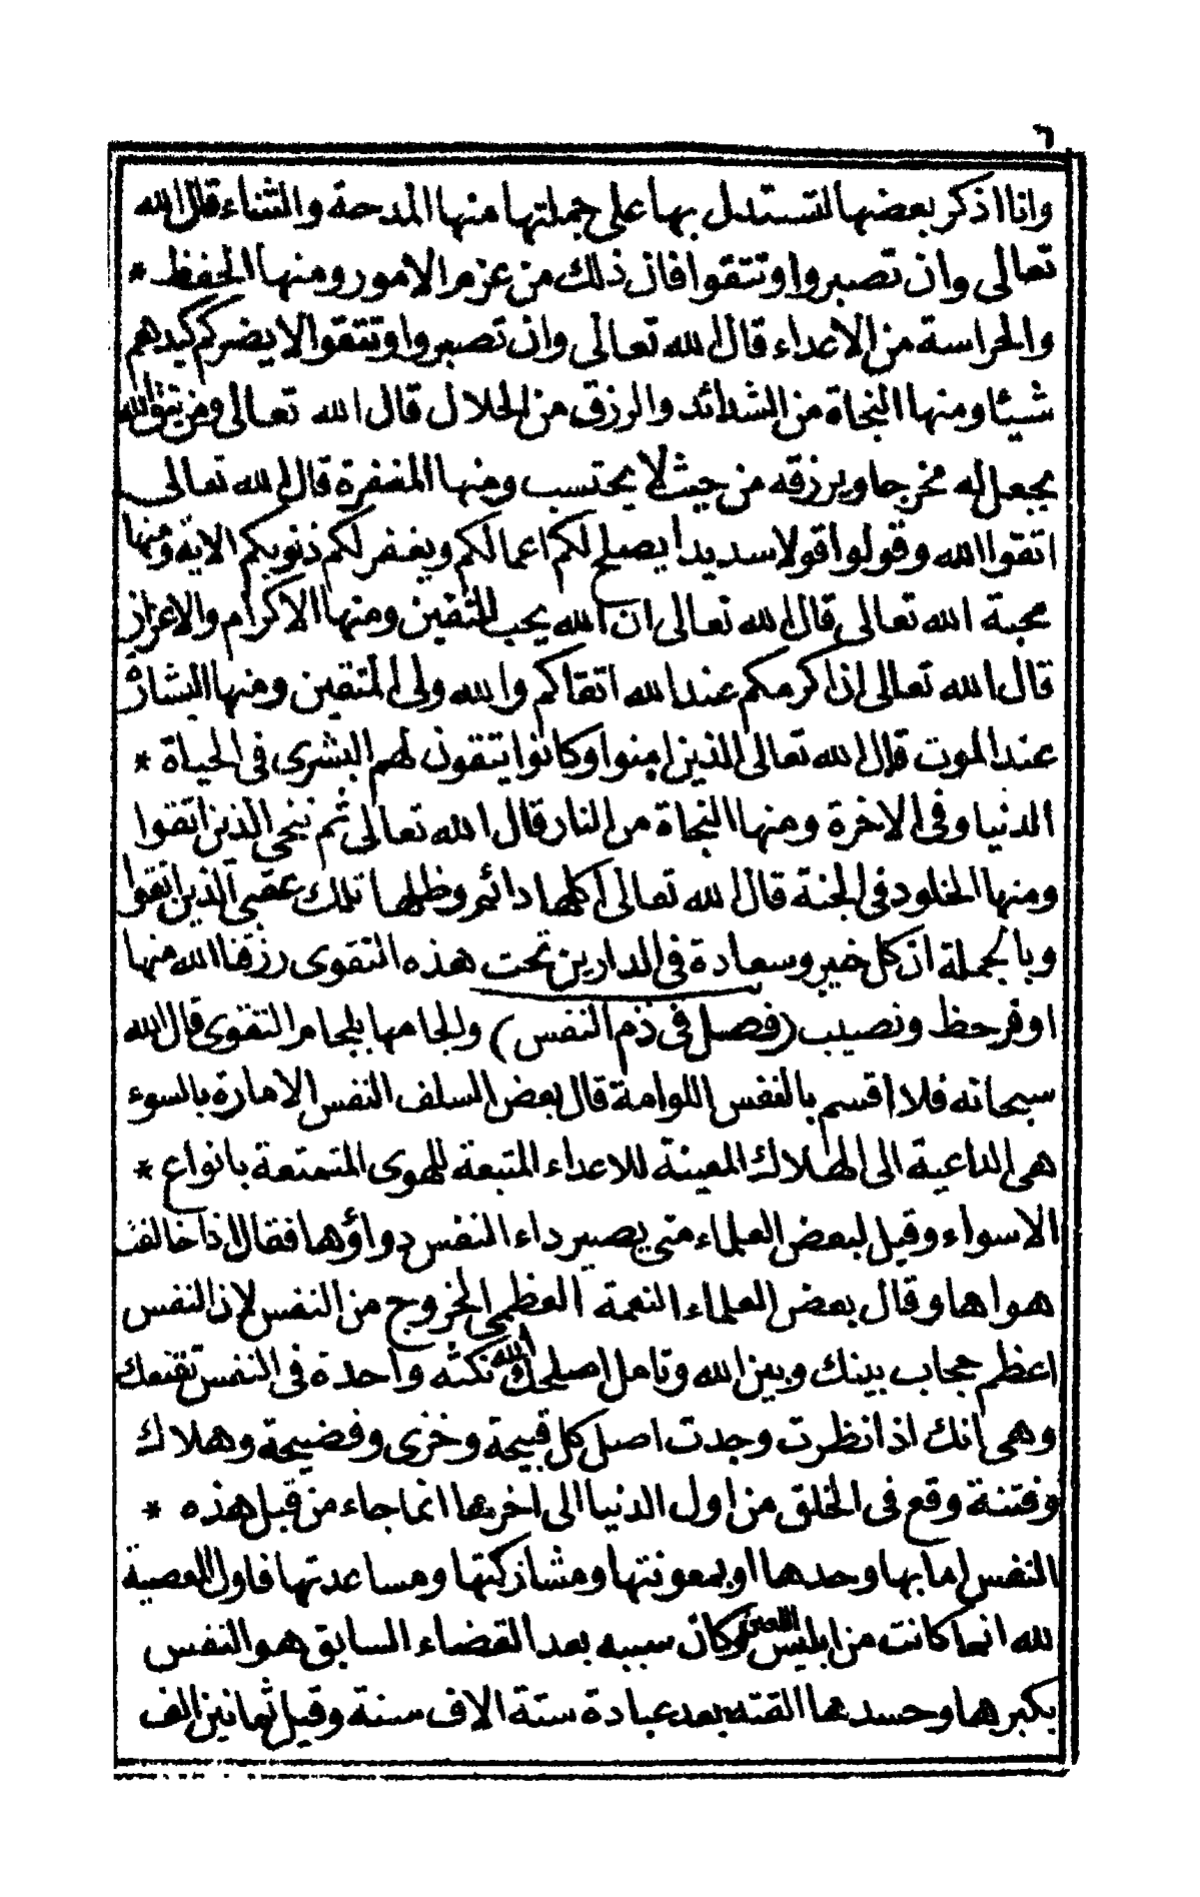 ٦
وانا اذكر بعضها لتستدل بها على جملتها منها المدحة والثناء قال الله
تعالى وان تصبروا وتتقوا فان ذلك من عزم الامور ومنها الحفظ *
والحراسة من الاعداء قال الله تعالى وان تصبروا وتتقوا لا يضركم كيدهم
شيئا ومنها النجاة من الشدائد والرزق من الحلال قال الله تعالى ومن يتق الله
يجعل له مخرجا ويرزقه من حيث لا يحتسب ومنها المغفرة قال الله تعالى
اتقوا الله وقولوا قولا سديدا يصلح لكم اعمالكم ويغفر لكم ذنوبكم الاية ومنها
محبة الله تعالى قال الله تعالى ان الله يحب المتقين ومنها الاكرام والاعزاز
قال الله تعالى ان اكرمكم عند الله اتقاكم والله ولى المتقين ومنها البشارة
عند الموت قال الله تعالى الذين امنوا وكانوا يتقون لهم البشرى فى الحياة *
الدنيا وفى الاخرة ومنها النجاة من النار قال الله تعالى ثم ننجى الذين اتقوا
ومنها الخلود فى الجنة قال الله تعالى اكلها دائم وظلها تلك عقبى الذين اتقوا
وبالجملة ان كل خير وسعادة فى الدارين تحت هذه التقوى رزقنا الله منها
اوفر حظ ونصيب (فصل فى ذم النفس) والجامها بلجام التقوى قال الله
سبحانه فلا اقسم بالنفس اللوامة قال بعض السلف النفس الامارة بالسوء
هى الداعية الى الهلاك المعينة للاعداء المتبعة للهوى المتمتعة بانواع *
الاسواء وقيل لبعض العلماء متى يصير داء النفس دواؤها فقال اذا خالفت
هواها وقال بعض العلماء النعمة العظمى الخروج من النفس لان النفس
اعظم حجاب بينك وبين الله وتامل اصلحك الله نكتة واحدة فى النفس تقنعك
وهى انك اذا نظرت وجدت اصل كل قبيحة وخزى وفضيحة وهلاك
وفتنة وقع فى الخلق من اول الدنيا الى اخرها انما جاء من قبل هذه *
النفس اما بها وحدها او بمعونتها ومشاركتها ومساعدتها فاول المعصية
لله انما كانت من ابليس اللعين وكان سببه بعد القضاء السابق هو النفس
بكبرها وحسدها القته بعد عبادة ستة الاف سنة وقيل ثمانين الف